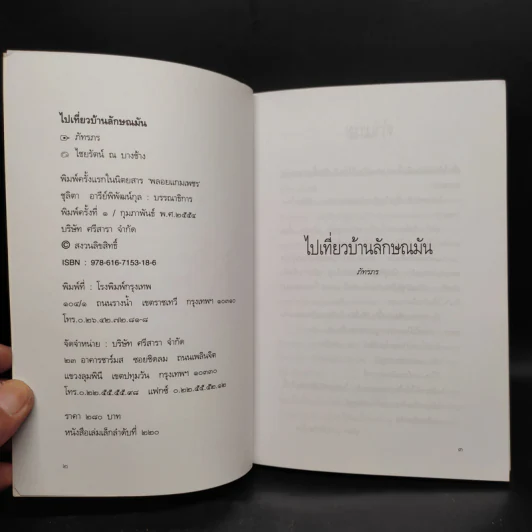 ไปเที่ยวบ้านลักษณมัน
ภัทรภร
ไชยรัตน์ ณ บางช้าง
พิมพ์ครั้งแรกในนิตยสาร 'พลอยแกมเพชร'
ชุลิตา อารีย์พิพัฒน์กุล : บรรณาธิการ
พิมพ์ครั้งที่ ๑ / กุมภาพันธ์ พ.ศ.๒๕๕๔
บริษัท ศรีสารา จำกัด
© สงวนลิขสิทธิ์
ISBN : 978-616-7153-18-6
พิมพ์ที่ : โรงพิมพ์กรุงเทพ
๑๐๔/๑ ถนนรางน้ำ เขตราชเทวี กรุงเทพฯ ๑๐๓๑๐
โทร.๐.๒๖.๔๒.๗๒.๘๑-๘
จัดจำหน่าย : บริษัท ศรีสารา จำกัด
๒๓ อาคารชาร์มส ซอยชิดลม ถนนเพลินจิต
แขวงลุมพินี เขตปทุมวัน กรุงเทพฯ ๑๐๓๓๐
โทร.๐.๒๒.๕๕.๕๕.๙๘ แฟกซ์ ๐.๒๒.๕๕.๕๒.๑๒
ราคา ๒๘๐ บาท
หนังสือเล่มเล็กลำดับที่ ๒๒๐
๒
ไปเที่ยวบ้านลักษณมัน
ภัทรภร
๓